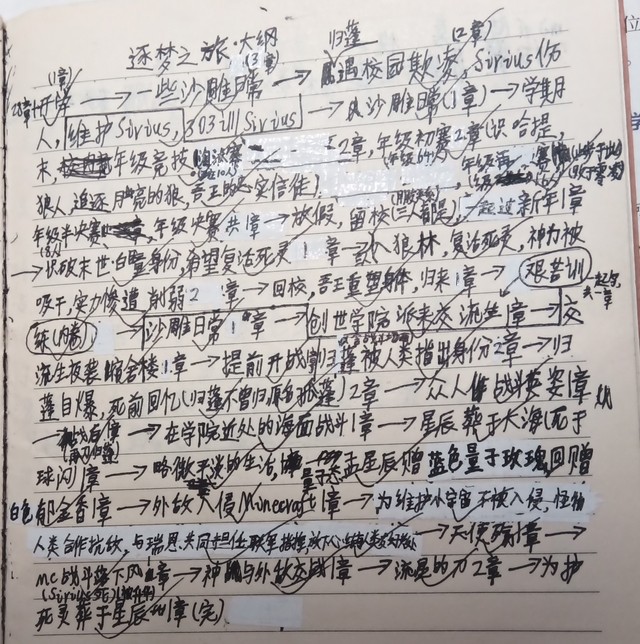 逐梦之旅·大纲
(1章) (3章) 归蓬 (2章)
开学→一些沙雕日常→遇校园欺凌,Sirius伤
人,维护Sirius,303训Sirius→沙雕日常(1章)→学期
末,年级竞技 2章,年级初赛2章(识哈提,
狼人,追逐月亮的狼,吾王的忠实信徒)
年级半决赛,年级决赛共1章→放假,留校(三人都是),一起过新年1章
→识破末世白昼身份,希望复活死灵1章→入狼林,复活死灵,神力被
吸干,实力惨遭削弱2章→回校,吾王重塑身体,归来1章→艰苦训
练(内卷)→沙雕日常1章→创世学院派来交流生1章→交
流生夜袭宿舍楼1章→提前开战,归蓬被人类指出身份2章→归
蓬自爆,死前回忆(归蓬不曾归,源自孤蓬)2章→众人作战英姿1章
→在学院近处的海面战斗1章→星辰葬于大海(死于
球闪)1章→略微平淡的生活,孟星辰赠蓝色量子玫瑰,回赠
白色郁金香1章→外敌入侵Minecraft1章→为维护小宇宙不被入侵,怪物
人类合作抗敌,与瑞恩共同担任联军指挥→天使殇1章→
MC战斗落下风章→神明与外敌交战1章→流星的刀2章→为护
死灵葬于星辰1章(完)